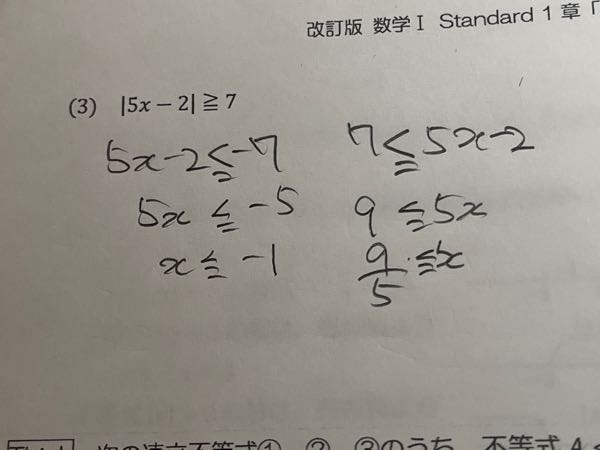 改訂版 数学Ⅰ Standard 1章「
(3) |5x − 2| ≧ 7
5x-2≦-7 7≦5x-2
5x ≦ -5 9 ≦5x
x ≦ -1 9/5 ≦x
次の連立不等式①，②，③のうち，不等式 A <